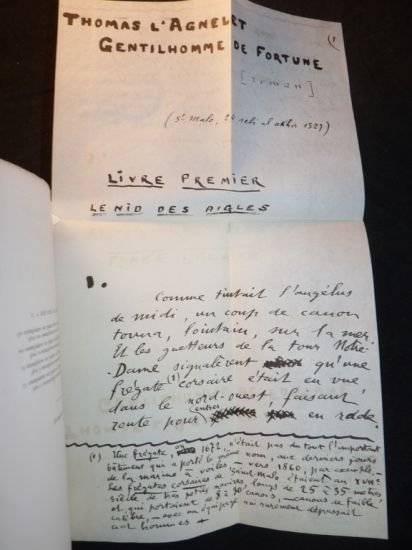 THOMAS L'AGNELET
GENTILHOMME DE FORTUNE
(1
[roman]
(St Malo, 14 rebi al akhir 1327)
LIVRE PREMIER
LE NID DES AIGLES
1.
Comme tintait l'angélus
de midi, un coup de canon
tonna, lointain, sur la mer.
Et les guetteurs de la tour Notre-
-Dame signalèrent qu'une
frégate (1) corsaire était en vue
dans le nord-ouest, faisant
route pour entrer en rade.
(1) Une frégate, en 1672, n'était pas du tout l'important
bâtiment qui a porté le même nom, aux derniers jours
de la marine à voiles – vers 1860, par exemple. –
Les frégates corsaires de Saint Malo étaient au XVIIe
siècle de très petits navires, longs de 25 à 35 mètres
et qui portaient de 8 à 30 canons, – canons de faible
calibre, – avec un équipage qui rarement dépassait
cent hommes